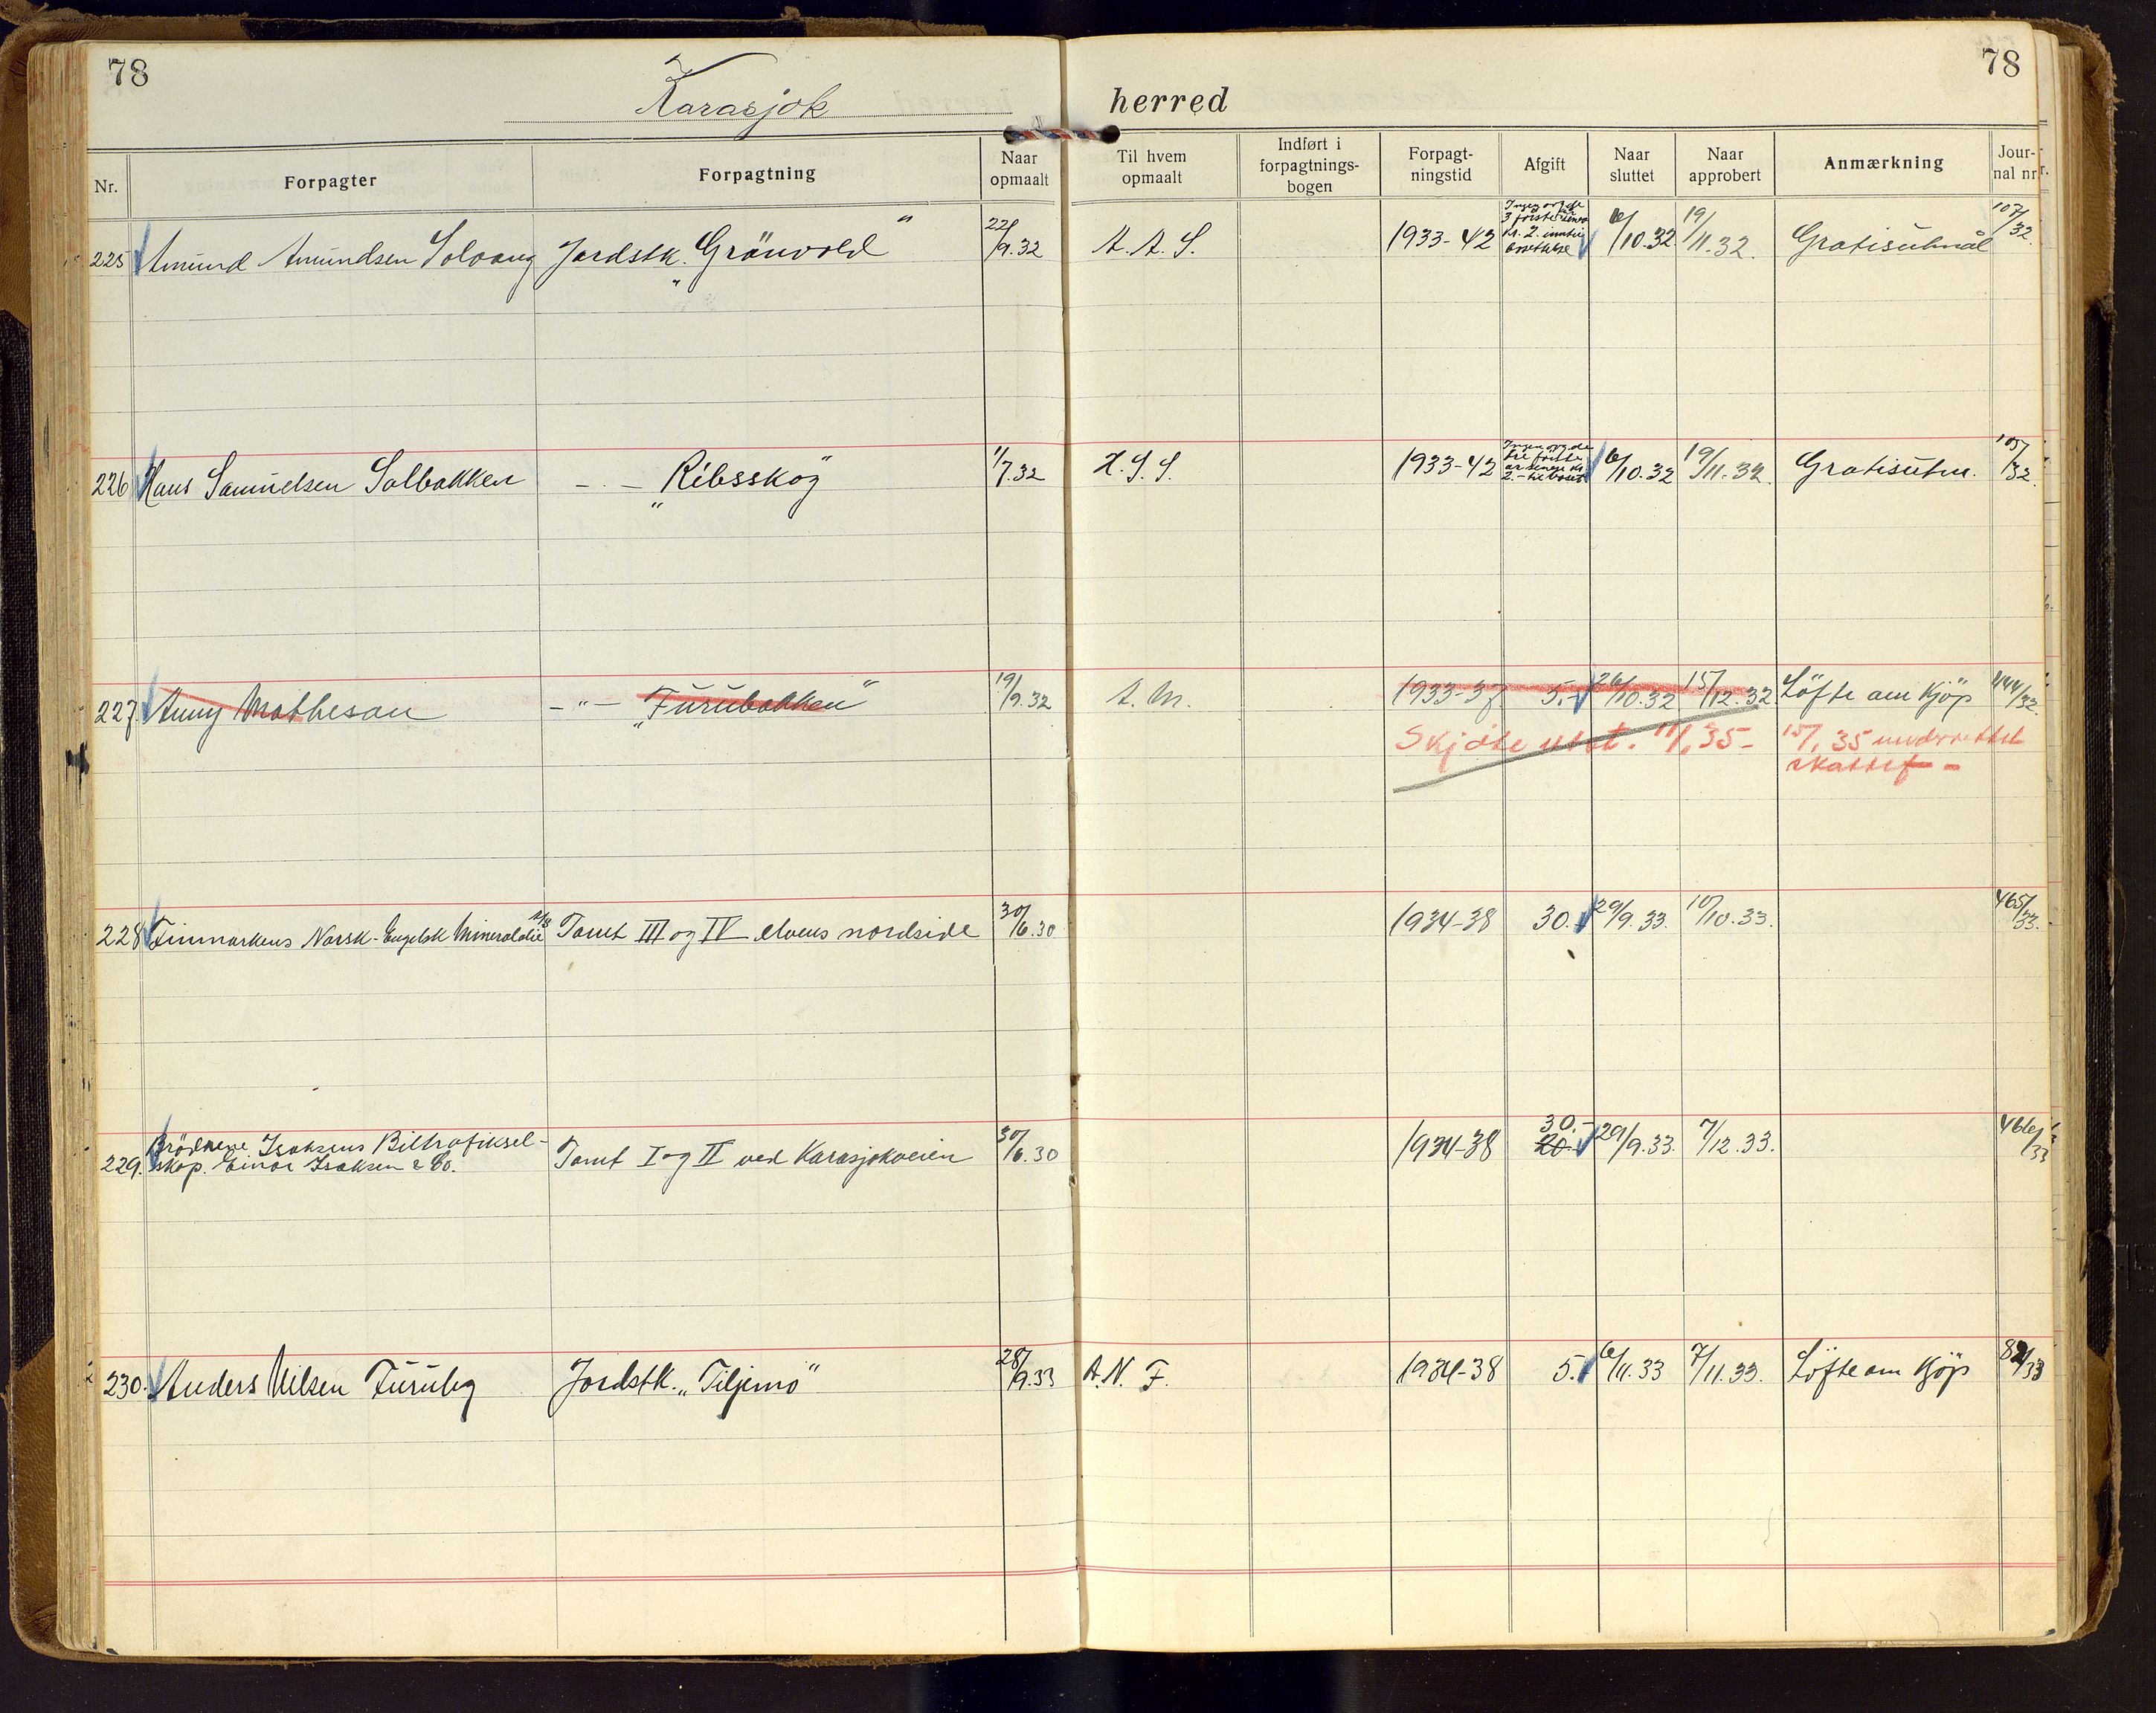 78
78
Karasjok herred
Nr. Forpagter Forpagtning Naar opmaalt Til hvem opmaalt Indført i forpagtnings-bogen Forpagt-ningstid Afgift Naar sluttet Naar approbert Anmærkning Jour-nal nr.
225 Amund Amundsen Solvang Jordstk. "Grönvold" 22/9.32 A. A. S. 1933-42 3 første kr. 2. 6/10.32 19/11.32. Gratisutmål 107/32.
226 Hans Samuelsen Solbakken - " - "Ribsskog" 1/7.32 H. S. S. 1933-42 tre første 2.- 6/10.32 19/11.32. Gratisutm. 105/32.
227. Anny Mathesen - " - "Furubakken" 19/9.32 A. M. 1933-37 5.- 26/10.32 15/12.32 Löfte om Kjöp 444/32.
Skjøte utst. 11/1 35- 15/1 35 underrettet
skattef -
228 Finmarkens Norsk-Engelsk Mineralolie A/S Tomt III og IV elvens nordside 30/6.30 1934-38 30. 29/9.33. 10/10.33. 465/33.
229. Brödrene Isaksens Biltrafiksel-
skap. Einar Isaksen & Co. Tomt I og II ved Karasjokveien 30/6.30 1934-38 30.- 20.- 29/9.33. 7/12.33. 466/33
230. Anders Nilsen Furuly Jordstk. "Tiljemo" 28/9.33 A. N. F. 1934-38 5. 6/11.33 7/11.33. Löfte om Kjöp 82/33